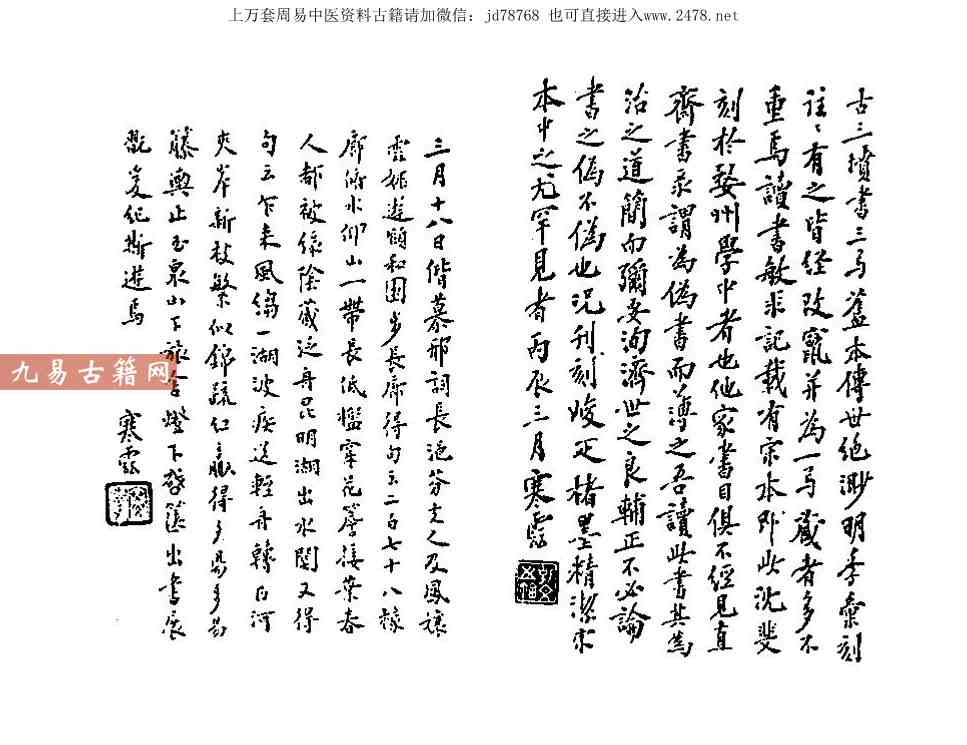 上万套周易中医资料古籍请加微信：jd78768 也可直接进入www.2478.net
古三墳書三弓蓋本傳世絕渺明季彙刻
往々有之皆經改竄并為一弓藏者多不
重焉讀書敏求記載有宋本即此沈斐
刻於婺州學中者也他家書目俱不經見直
齋書录謂為偽書而薄之吾讀此書其為
治之道簡而彌要洵濟世之良輔正不必論
書之偽不偽也况刊刻峻正楮墨精潔宋
本中之尤罕見者丙辰三月寒雲
三月十八日偕慕邢詞長 芬夫人及鳳
雲姬遊頤和園步長廊得句云二百七十八椽
廊俯水仰山一帶長低檻穿花簷接葉春
人都被綠陰藏泛舟昆明湖出水關又得
句云乍来風縐一湖波疾送輕舟轉白河
夾岸新枝繁似錦疏红贏得多
籐輿止玉泉山下旅舍燈下啓篋出書展
觀爰紀斯遊焉 寒雲
九易古籍网